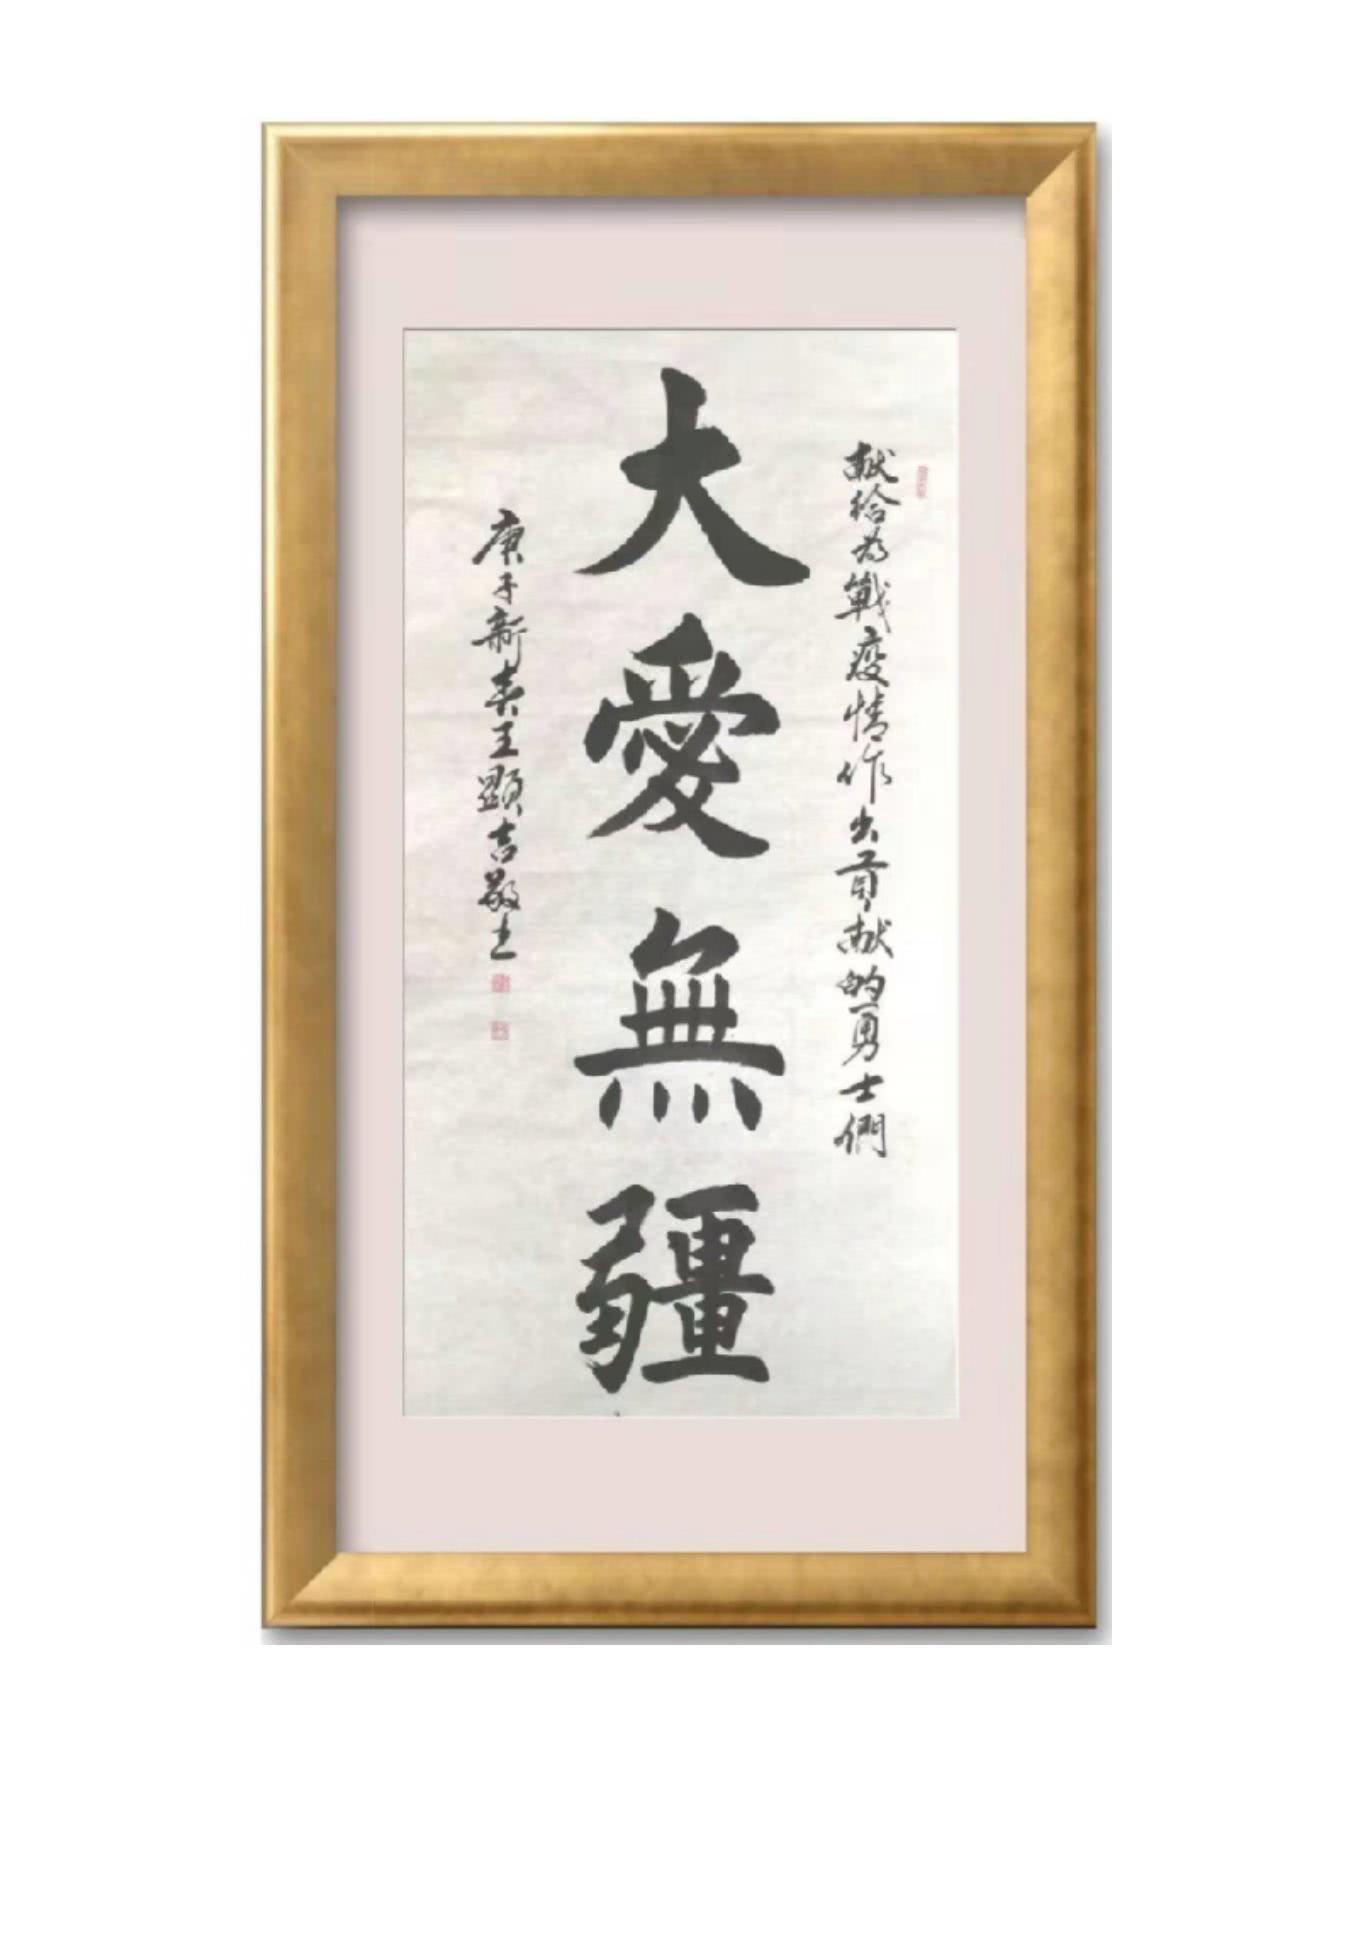 献给为戰疫情作出貢献的勇士們
大愛無疆
庚子新春王顯吉敬書